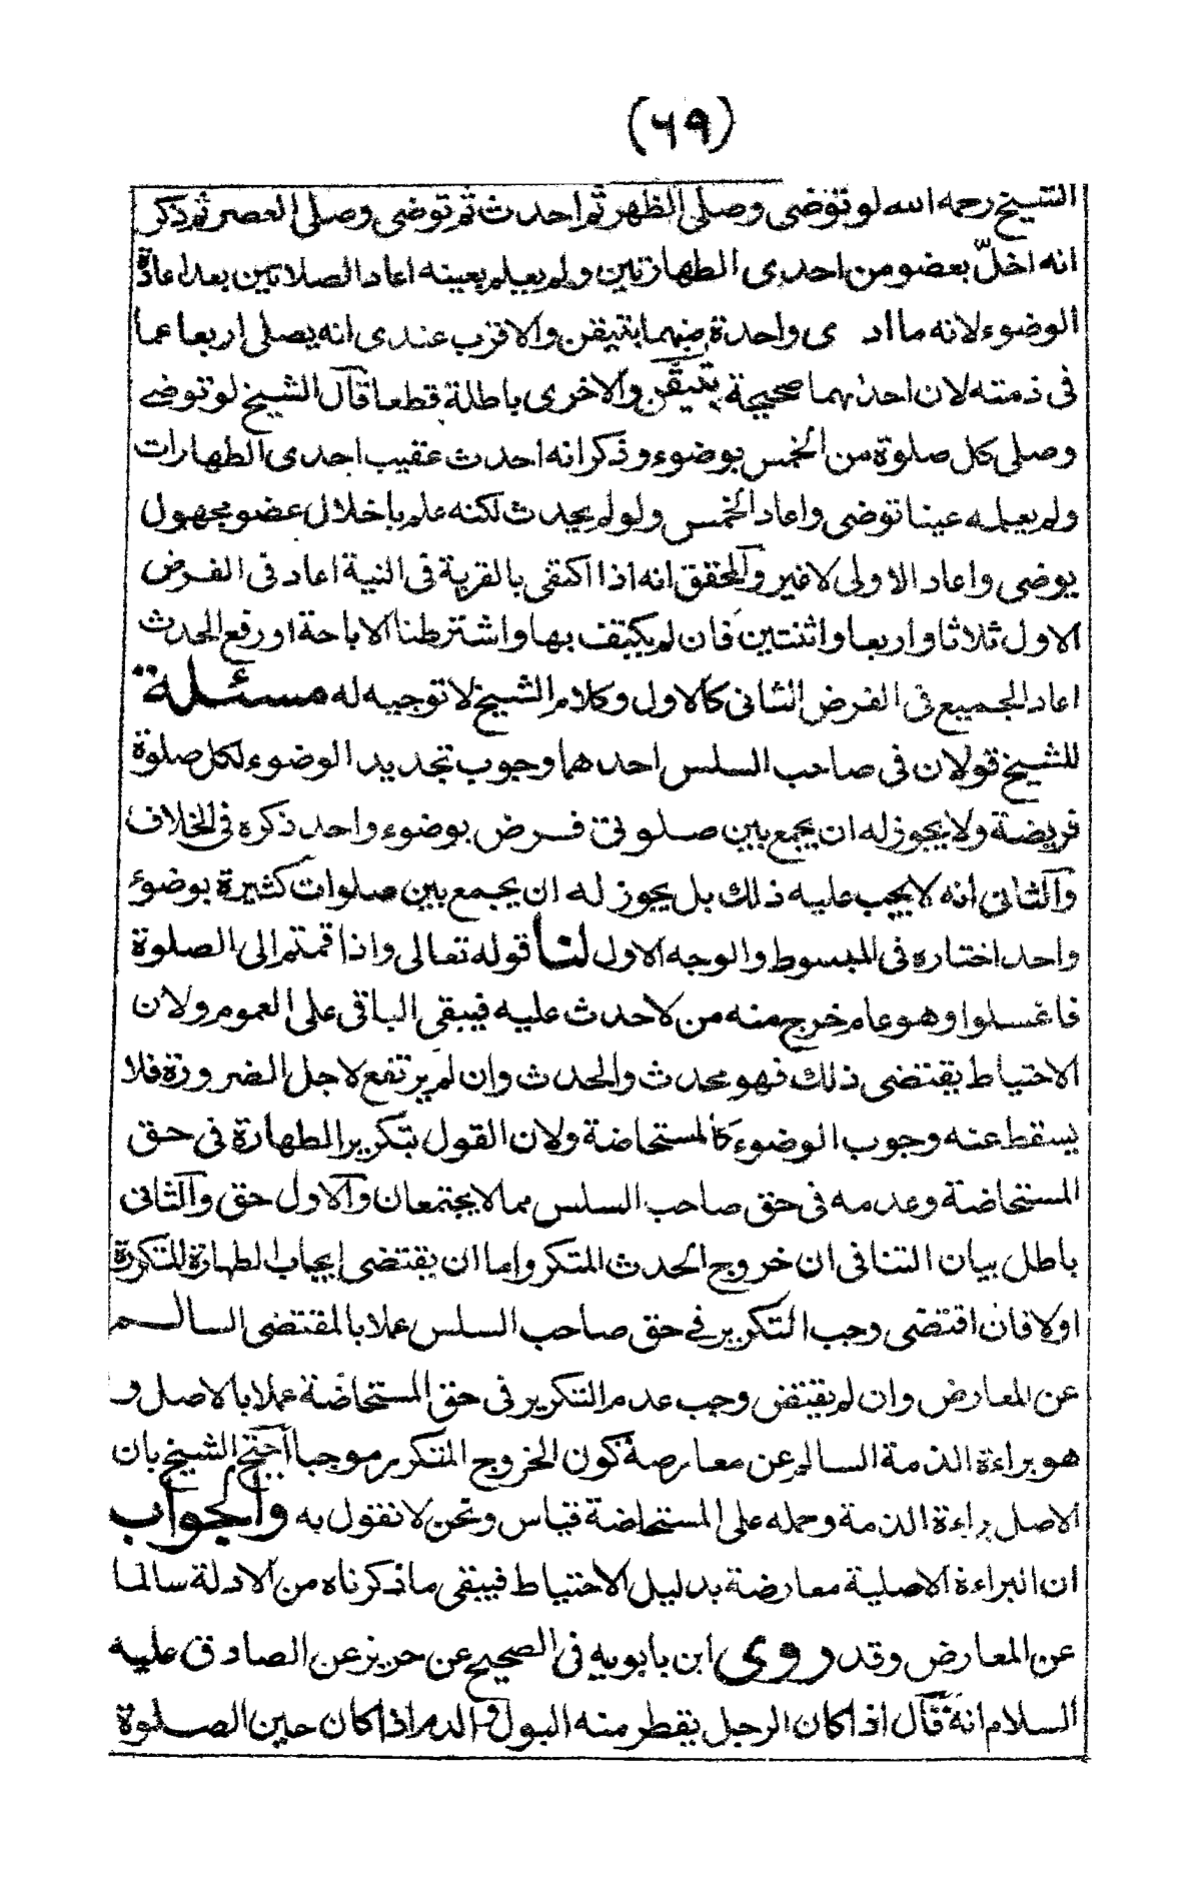 (٦٩)
الشيخ رحمه الله لو توضى وصلى الظهر ثم احدث ثم توضى وصلى العصر ثم ذكر
انه اخلّ بعضو من احدى الطهارتين ولم يعلم بعينه اعاد الصلاتين بعد اعادة
الوضوء لانه ما اد ى واحدة منهما بتيقن والاقرب عندى انه يصلى اربعا عما
فى ذمته لان احدٰىهما صحيحة بتيقّن والاخرى باطلة قطعا قال الشيخ لو توضئ
وصلى كل صلوة من الخمس بوضوء وذكر انه احدث عقيب احدى الطهارات
ولم يعلمه عينا توضى واعاد الخمس ولو لم يحدث لكنه علم باخلال عضو مجهول
يوضى واعاد الاولى لا غير والمحقق انه اذا اكتفى بالقربة فى النية اعاد فى الفرض
الاول ثلاثا واربعا واثنتين فان لم يكتف بها واشترطنا الاباحة او رفع الحدث
اعاد الجميع فى الفرض الثانى كالاول وكلام الشيخ لا توجيه له مسئلة
للشيخ قولان فى صاحب السلس احدهما وجوب تجديد الوضوء لكل صلوة
فريضة ولا يجوز له ان يجمع بين صلوتى فرض بوضوء واحد ذكره فى الخلاف
والثانى انه لا يجب عليه ذلك بل يجوز له ان يجمع بين صلوات كثيرة بوضوء
واحد اختاره فى المبسوط والوجه الاول لنا قوله تعالى واذا قمتم الى الصلوة
فاغسلوا وهو عام خرج منه من لا حدث عليه فيبقى الباقى على العموم ولان
الاحتياط يقتضى ذلك فهو محدث والحدث وان لم يرتفع لاجل الضرورة فلا
يسقط عنه وجوب الوضوء كالمستحاضة ولان القول بتكرير الطهارة فى حق
المستحاضة وعدمه فى حق صاحب السلس مما لا يجتمعان والاول حق والثانى
باطل بيان التنافى ان خروج الحدث المتكرر اما ان يقتضى ايجاب الطهارة المتكررة
اولا فان اقتضى وجب التكرير فى حق صاحب السلس عملا بالمقتضى السالم
عن المعارض وان لم يقتض وجب عدم التكرير فى حق المستحاضة عملا بالاصل و
هو براءة الذمة السالم عن معارضة كون الخروج المتكرر موجبا احتج الشيخ بان
الاصل براءة الذمة وحمله على المستحاضة قياس ونحن لا نقول به والجواب
ان البراءة الاصلية معارضة بدليل الاحتياط فيبقى ما ذكرناه من الادلة سالما
عن المعارض وقد روى ابن بابويه فى الصحيح عن حريز عن الصادق عليه
السلام انه قال اذا كان الرجل يقطر منه البول والدم اذا كان حين الصلوة